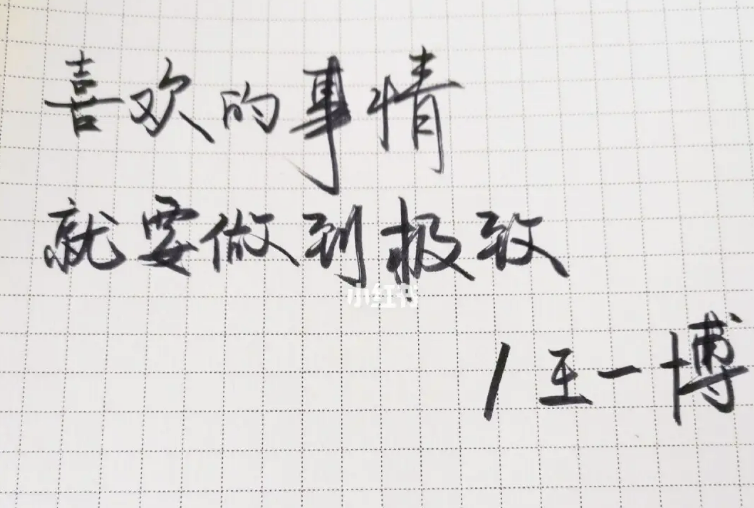 喜欢的事情
就要做到极致
小红书
/王一博